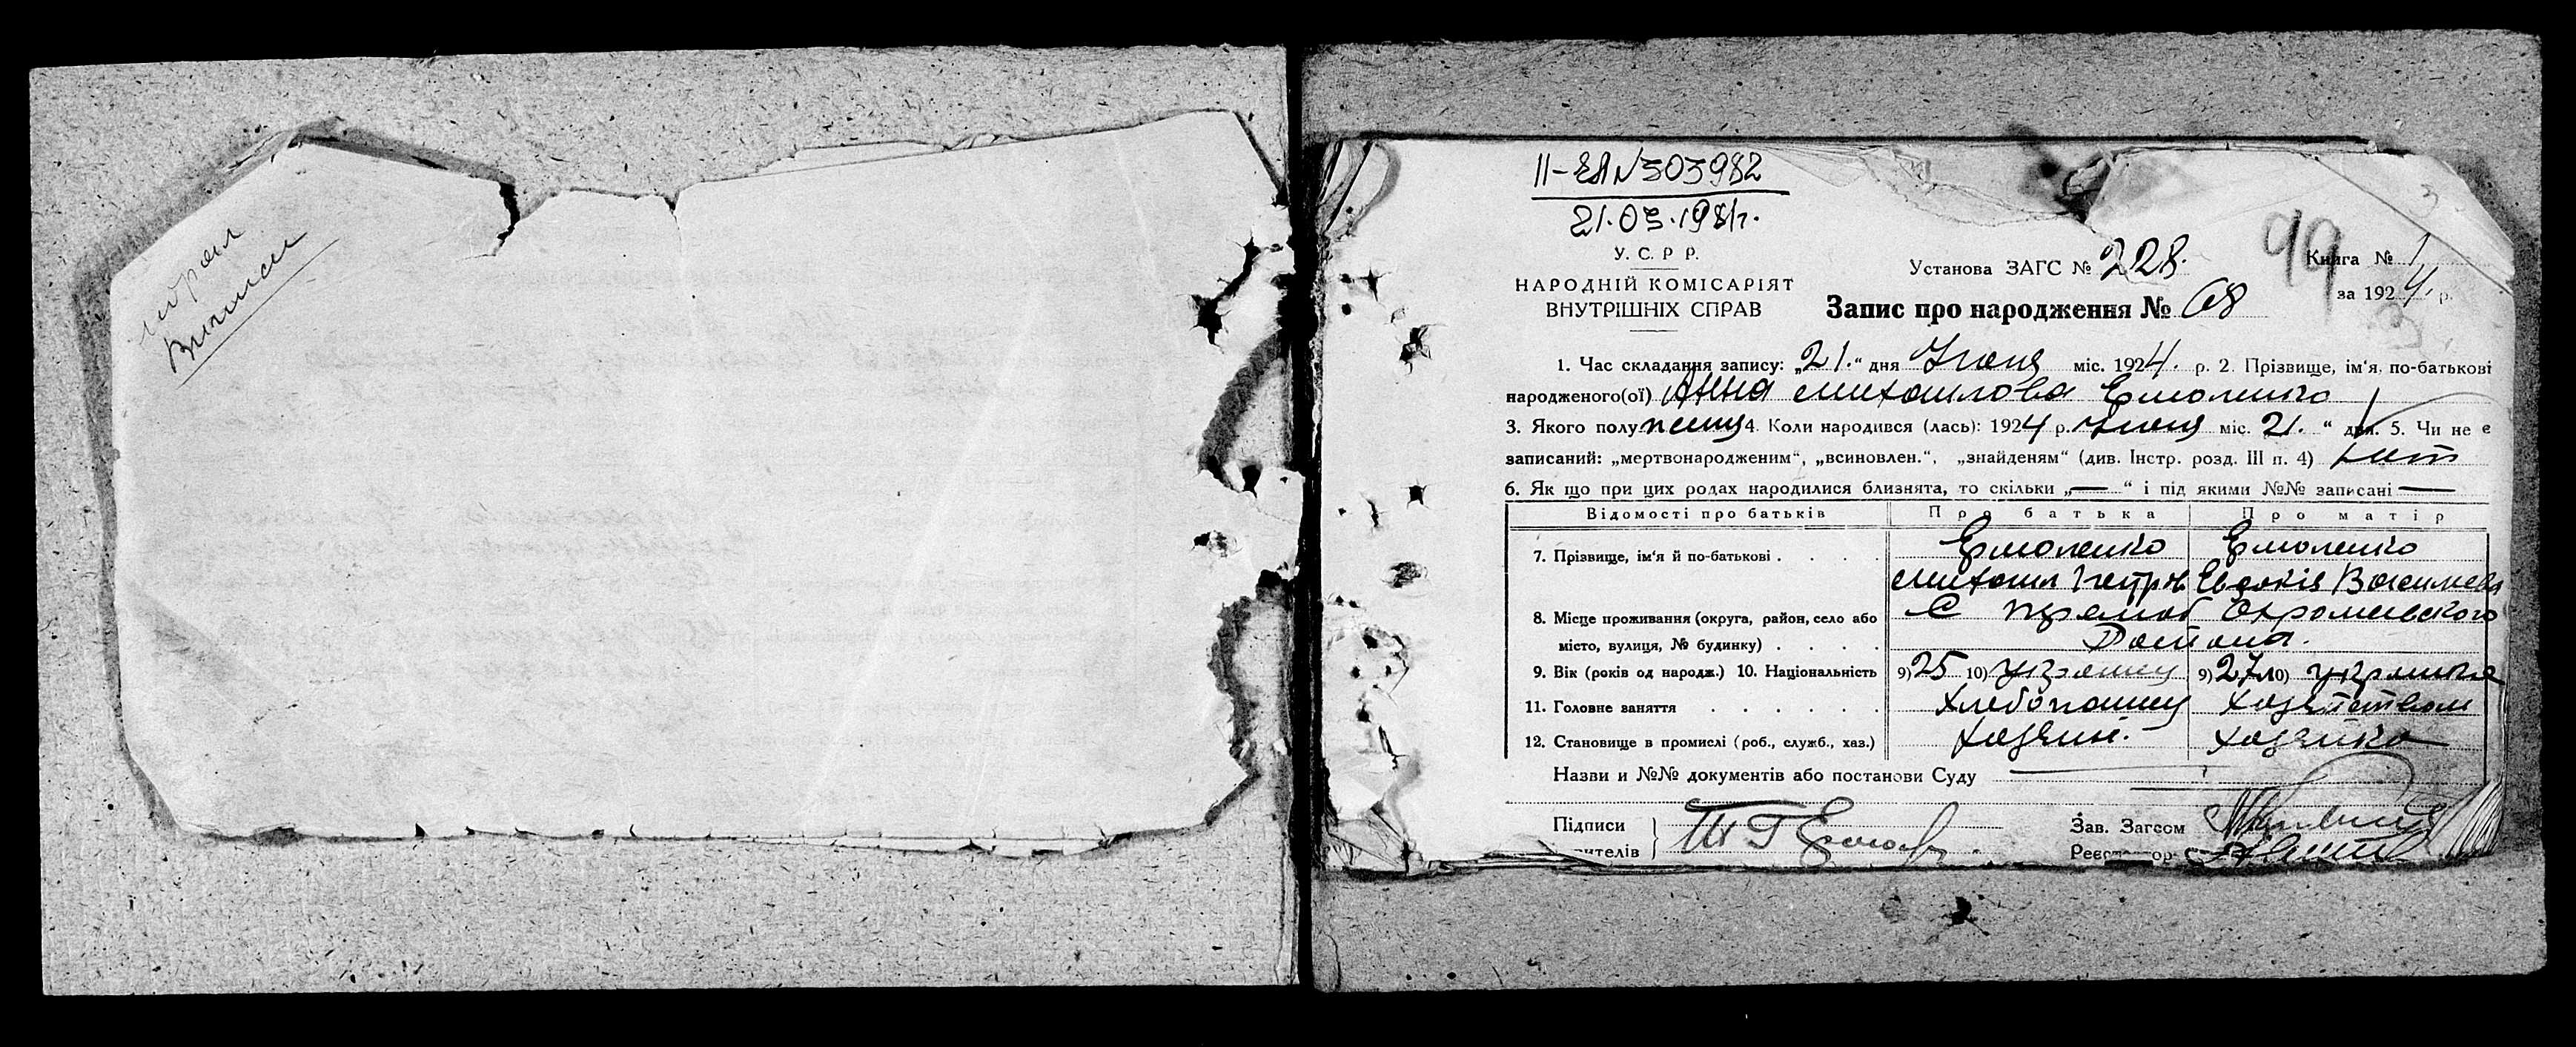 Выписан
II-ЕА №303982
21.03.1981г.
У. С. Р Р.
НАРОДНІЙ КОМІСАРІЯТ
ВНУТРІШНІХ СПРАВ
Установа ЗАГС № 228.
99
Книга № 1
за 1924 р.
Запис про народження № 68
1. Час складання запису: „21.“ дня Июня міс. 1924. р. 2. Прізвище, ім'я, по-батькові
народженого(ої) Анна Михаилова Ермоленко
3. Якого полу женщ 4. Коли народився (лась): 1924 р. Июня міс. 21. “ дня. 5. Чи не є
записаний: „мертвонародженим“, „всиновлен.“, „знайденям“ (див. Інстр. розд. III п. 4) Нет
6. Як що при цих родах народилися близнята, то скільки „—“ і під якими №№ записані —
Відомості про батьків Про батька Про матір
7. Прізвище, ім'я й по-батькові . . . Ермоленко Ермоленко
Михаил Петров Евдокія Васильева
8. Місце проживання (округа, район, село або
місто, вулиця, № будинку) . . . .
Района.
9. Вік (років од народж.) 10. Національність 9) 25 10) украинец 9) 27 10) украинка
11. Головне заняття . . . . . . Хлебопашец Хозяйством
12. Становище в промислі (роб., служб., хаз.) Хозяин. Хозяйка
Назви и №№ документів або постанови Суду —
Підписи
Зав. Загсом